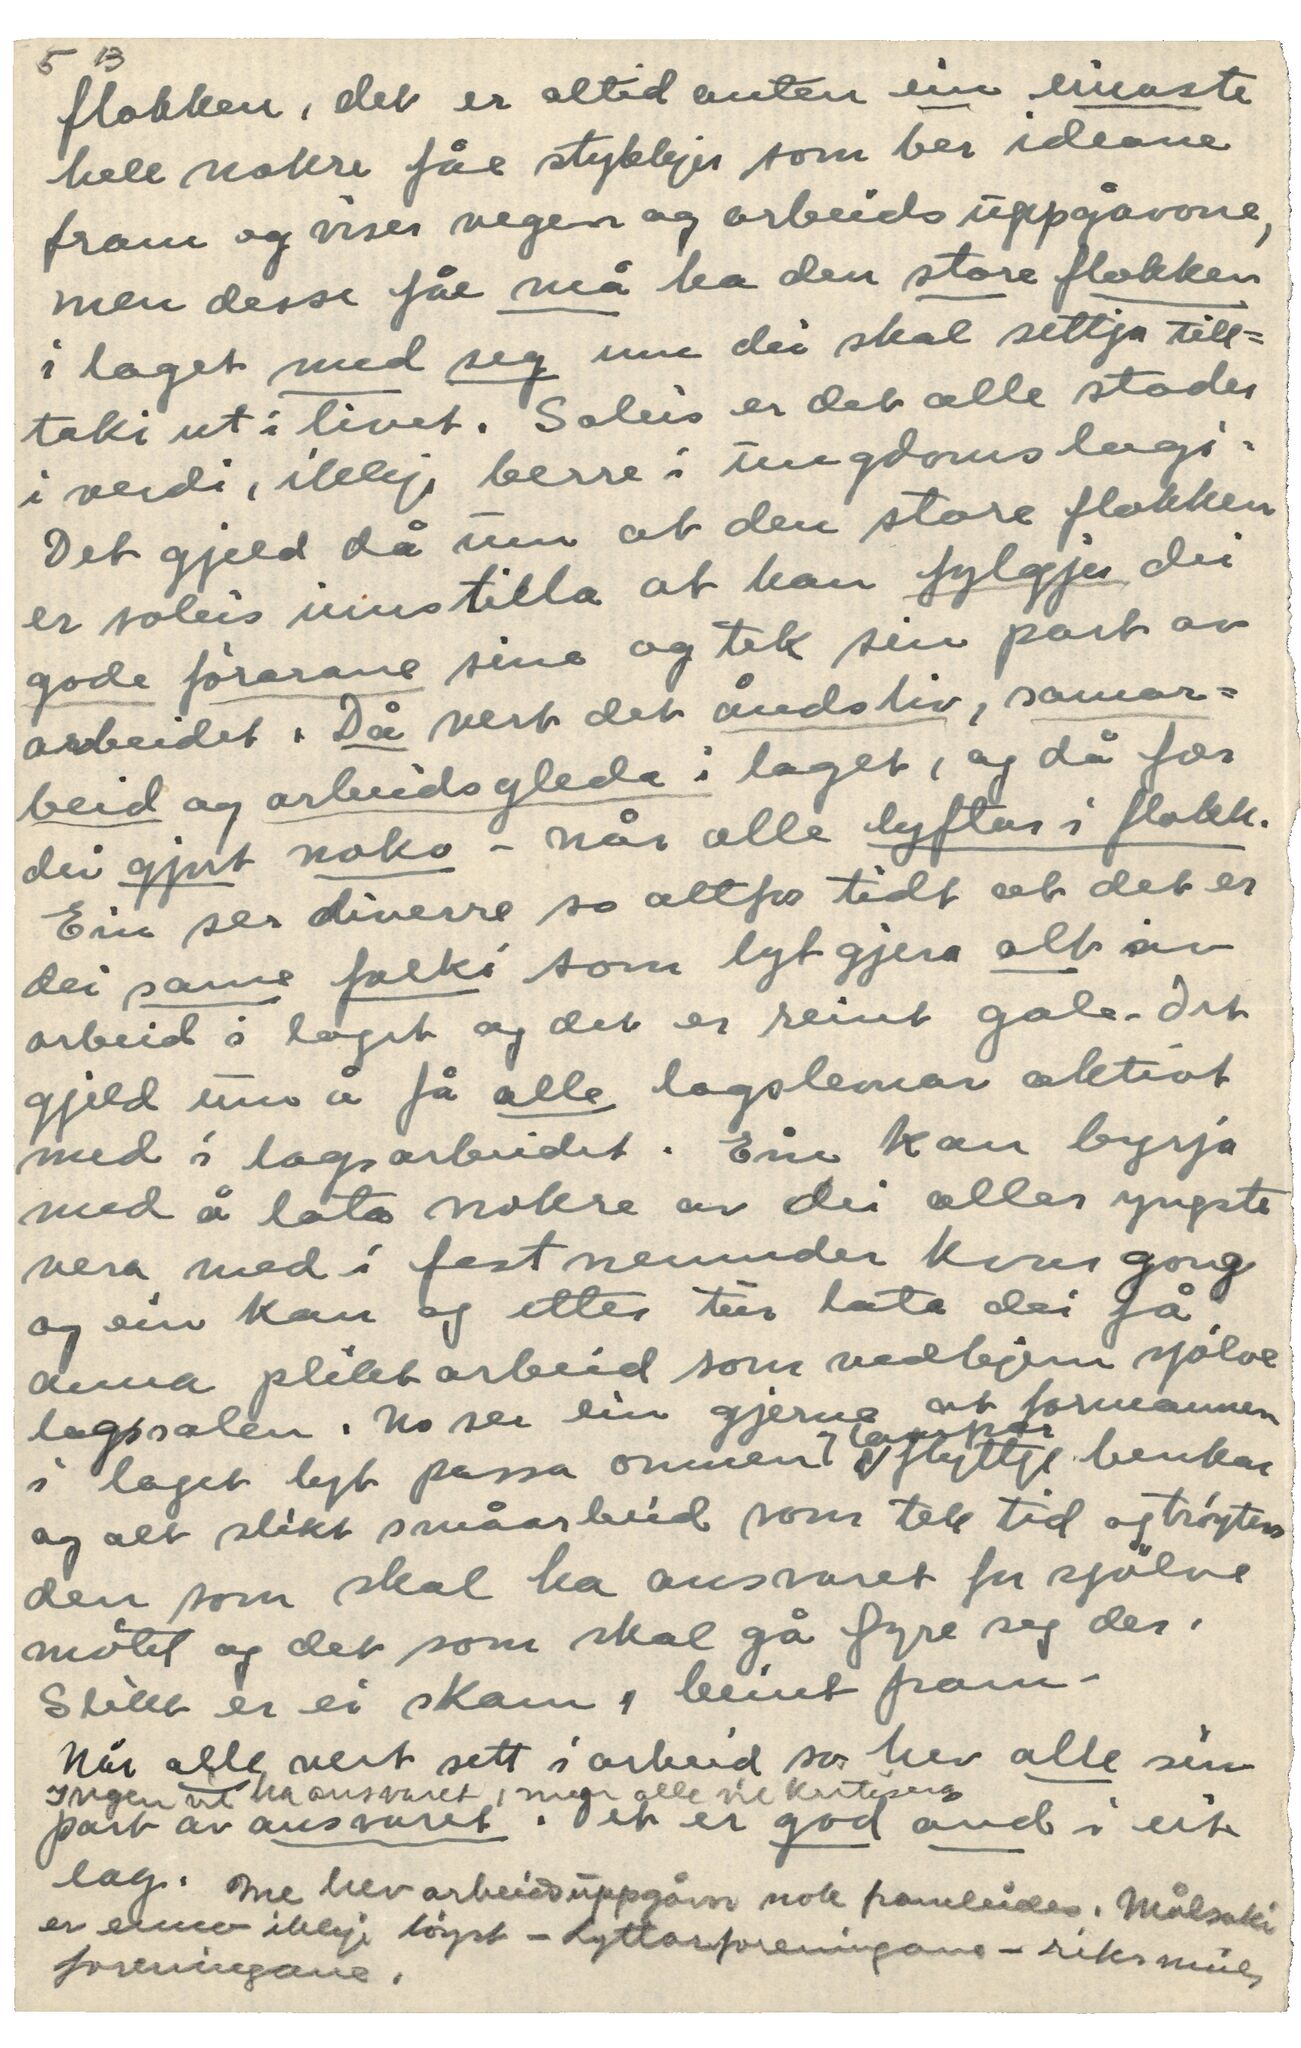 5 13
flokken, det er altid anten ein einaste
hell nokre fåe stykkjer som ber ideane
fram og viser vegen og arbeidsuppgåvone,
men desse fåe må ha den store flokken
i laget med seg um dei skal settja till=
taki ut i livet. Soleis er det alle stader
i verdi, ikkje berre i ungdomslagi.
Det gjeld då um at den store flokken
er soleis innstilla at han fylgjer dei
gode förarane sine og tek sin part av
arbeidet. Då vert det åndsliv, samar=
beid og arbeidsgleda i laget, og då fær
dei gjort noko - når alle lyftar i flokk.
Ein ser diverre so altfor tidt at det er
dei same folki som lyt gjera alt av
arbeid i laget og det er reint gale. Det
gjeld um å få alle lagslemar aktivt
med i lagsarbeidet. Ein kan byrja
med å lata nokre av dei aller yngste
vera med i festnemnder kvar gong
og ein kan og etter tur lata dei få
anna pliktarbeid som vedkjem sjölve
lagssalen. No ser ein gjerne at formannen
i laget lyt passa omnen, lampor flyttje benkar
og alt slikt småarbeid som tek tid og tröytar
den som skal ha ansvaret for sjölve
mötet og det som skal gå fyre seg der.
Slikt er ei skam, beint fram.
Når alle vert sett i arbeid so hev alle sin
Ingen vil ha ansvaret, men alle vil kritisera
part av ansvaret. Det er god ånd i eit
lag. Me hev arbeidsuppgåvor nok framleides. Målsaki
er enno ikkje löyst - Lyttarforeningane - riksmåls
foreningane.